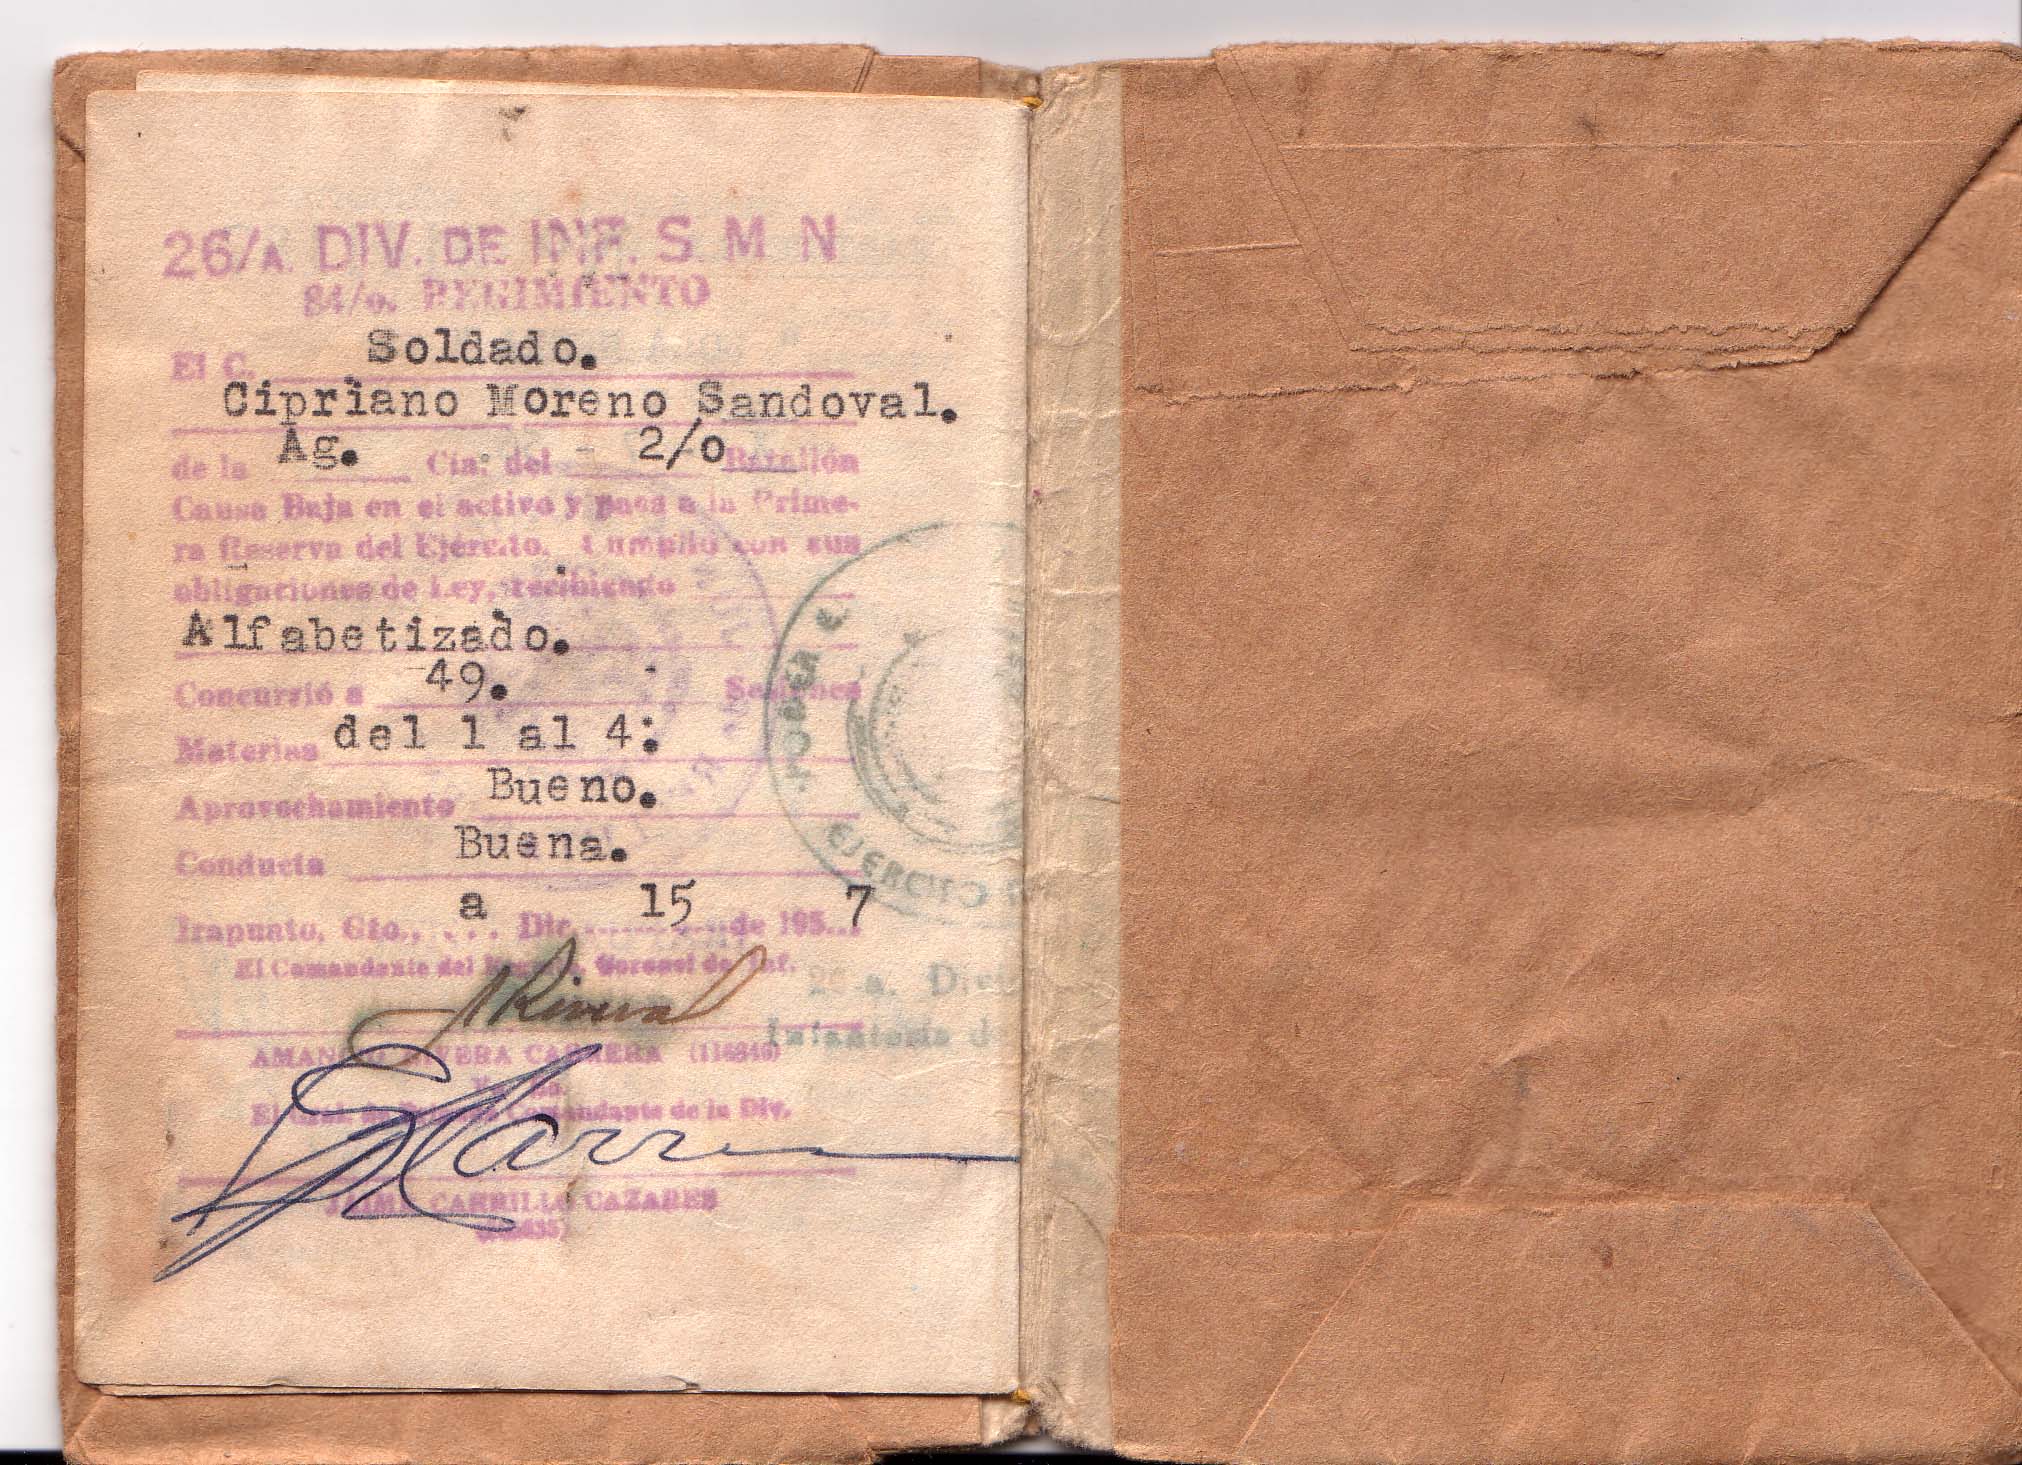 26/A. DIV. DE INF. S. M. N
84/o. REGIMIENTO
El C. Soldado.
Cipriano Moreno Sandoval.
de la Ag. Cia. del 2/o Batallón
Causa Baja en el activo y pasa a la Prime-
ra Reserva del Ejército. Cumplió con sus
obligaciones de Ley, recibiendo
Alfabetizado.
Concurrió a 49. Sesiones
Materias del 1 al 4:
Aprovechamiento Bueno.
Conducta Buena.
Irapuato, Gto., a ... Dic. 15 de 195 7
El Comandante del Coronel de Inf.
ARivera
AMANCIO RIVERA CABRERA
Comandante de la Div.
JAIME CARRILLO CAZARES
EJERCITO
26-a.
Infantería de